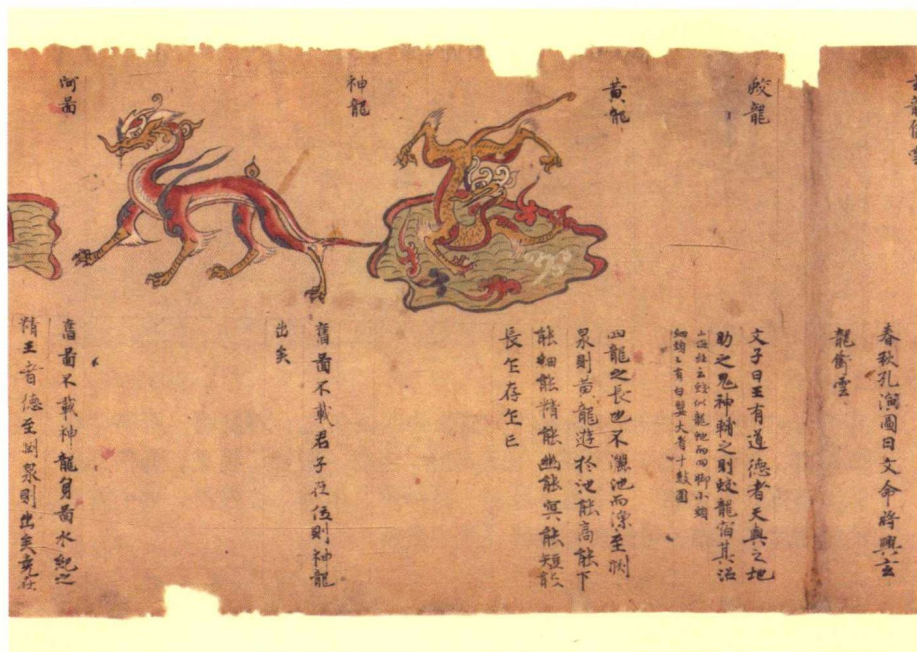 春秋孔演圖曰文命將興玄
龍銜雲
蛟龍
文子曰王有道德者天與之地
助之鬼神輔之則蛟龍宿其沼
山海經云蛟似龍虵而四脚小頭
細頸々有白嬰大者十數圍
黃龍
四龍之長也不漉池而漁至渕
泉則黃龍遊於池能高能下
能細能精能幽能冥能短能
長乍存乍亡
神龍
舊啚不載君子在位則神龍
出矣
河啚
舊啚不載神龍負啚水紀之
精王者德至渕泉則出矣堯在